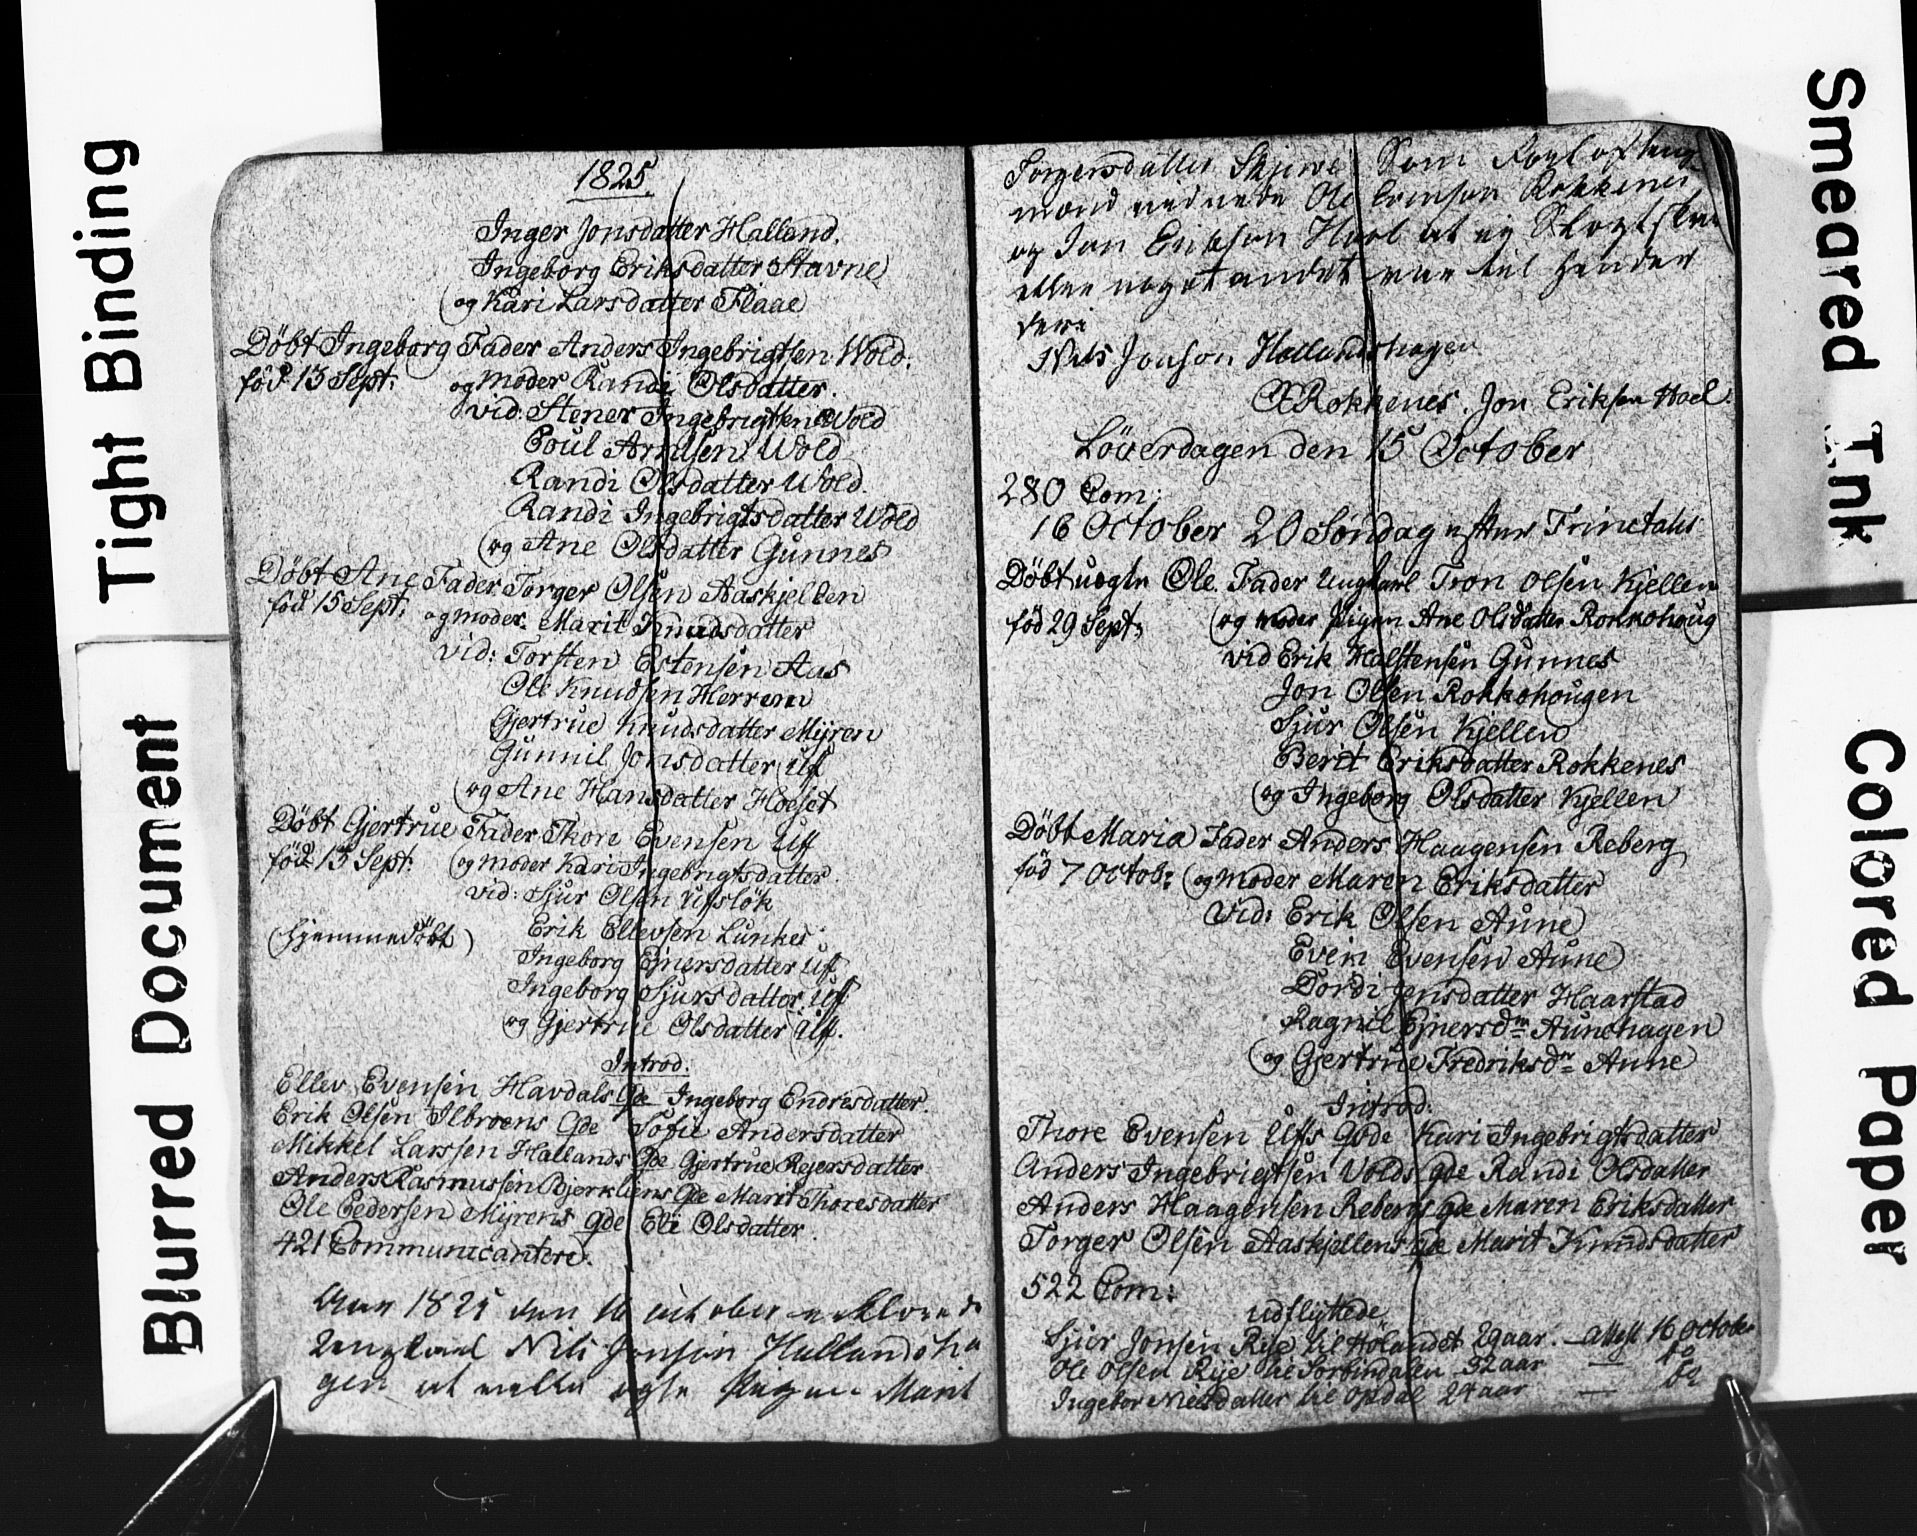 Tight Binding
Blurred Document
Smeared Ink
Colored Paper
1825.
Inger Jonsdatter Halland.
Ingeborg Eriksdatter Stavne
og Kari Larsdatter Flaae
Döbt Ingeborg Fader Anders Ingebrigtsen Wold.
föd 13 Sept: og Moder Randi Olsdatter.
vid: Stener Ingebrigtsen Wold
Poul Arntsen Wold
Randi Olsdatter Wold.
Randi Ingebrigtsdatter Wold
og Ane Olsdatter Gunnes
Döbt Ane Fader Torger Olsen Aaskjellen
föd 15 Sept. og moder. Marit Knudsdatter
vid: Torsten Estensen Aas
Ole Knudsen Herrem
Gjertrue Knudsdatter Mÿren
Gunnil Jonsdatter Uf
og Ane Hansdatter Hoeset
Döbt Gjertrue Fader Thore Evensen Uff
föd 13 Sept: og moder Kari Ingebrigtsdatter.
vid: Sjur Olsen Ufslök
(hjemmedöbt) Erik Ellevsen Lunkes
Ingeborg Ejnersdatter Uf
Ingeborg Sjursdatter Uf
og Gjertrue Olsdatter Uf.
Introd:
Ellev Evensen Havdals Gde Ingeborg Endresdatter.
Erik Olsen Ilbroens Gde Tofil Andersdatter
Mikkel Larssen Hallands Gde Gjertrue Rejersdatter
Anders Rasmussen Bjerkliens Gde Marit Thoresdatter
Ole Pedersen Mÿrens Gde Eli Olsdatter.
421 Communicantere.
Aar 1825 den 16 october erklærede
Ungkarl Nils Jonsen Hallandsha
gen at ville ægte Pigen Marit
Torgersdatter Skjerve Som
Ole Rokkenes
og Jon Erikson Hoel at ej
eller noget andet var til hinder
deri
Nils Jonson Hallandshagen
Rokkenes. Jon Eriksen Hoel.
Löverdagen den 15 October
280 Com:
16 October 20 Söndag efter Trinetatis
Döbt uægte Ole. Fader Ungkarl Tron Olsen Kjellen
föd 29 Sept: og moder Pigen Ane Olsdatter Rokkohoug
vid Erik Halstensen Gunnes
Jon Olsen Rokkohougen
Sjur Olsen Kjellen
Berit Eriksdatter Rokkenes
og Ingeborg Olsdatter Kjellen
Döbt Maria Fader Anders Haagensen Reberg
föd 7 Octob: og Moder Maren Eriksdatter
Vid: Erik Olsen Aune
Even Evensen Aune
Dordi Jensdatter Haarstad
Ragnil Ejnersdr Aunehagen
og Gjertrue Fredriksdr Aune
Introd:
Thore Evensen Uffs Gde Kari Ingebrigtsdatter
Anders Ingebrigtsen Volds Gde Randi Olsdatter
Anders Haagensen Rebergs Gde Maren Eriksdatter
Torger Olsen Aaskjellens Gde Marit Knudsdatter
522 Com:
udflyttede
Sjur Jonsen Rise til Hölandet 29 aar. — attest 16 October
Ole Olsen Rise til Sorbindalen 32 aar — do
Ingebor Nielsdatter til Opdal 24 aar — do